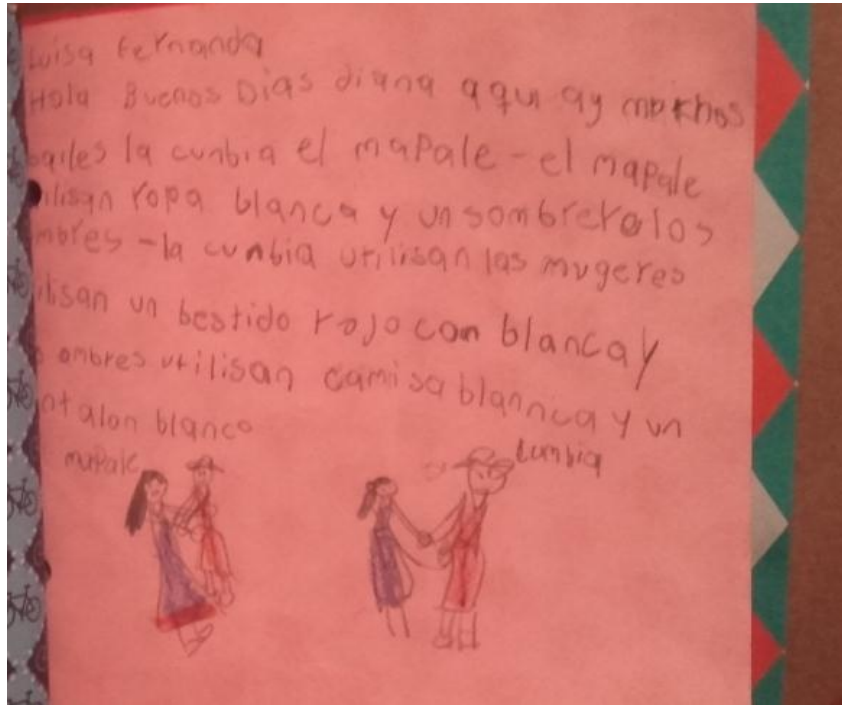 Luisa Fernanda
Hola Buenos Dias diana aqui ay mochos
bailes la cunbia el mapale - el mapale
utilisan ropa blanca y un sombrero los
ombres - la cunbia utilisan las mugeres
utilisan un bestido rojo con blanca y
ombres utilisan camisa blannca y un
pantalon blanco
mapale
cumbia